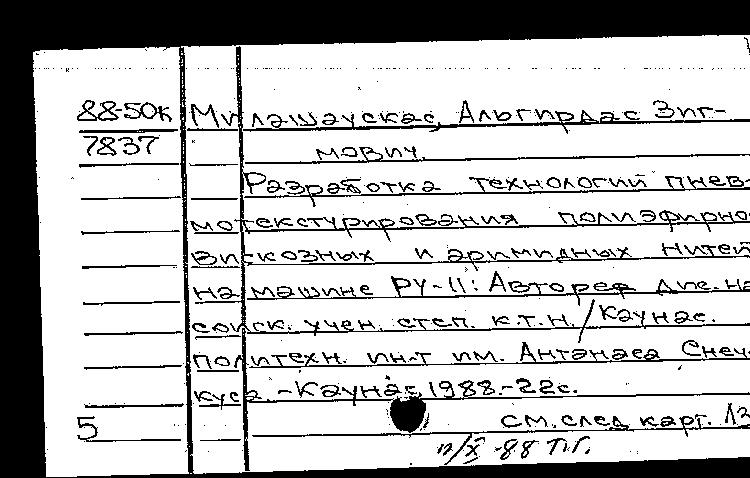 88-50к Милашаускас, Альгирдас Зиг-
7837 мович.
Разработка технологий пнев-
мотекстурирования полиэфирно
вискозных и аримидных нитей
на машине РУ-11: Автореф дис. на
соиск. учен. степ. к.т.н. / Каунас.
политехн. ин-т им. Антанаса Снеч-
куса. - Каунас, 1988. - 22с.
5 см. след карт. 13
п/X -88 П.Г.